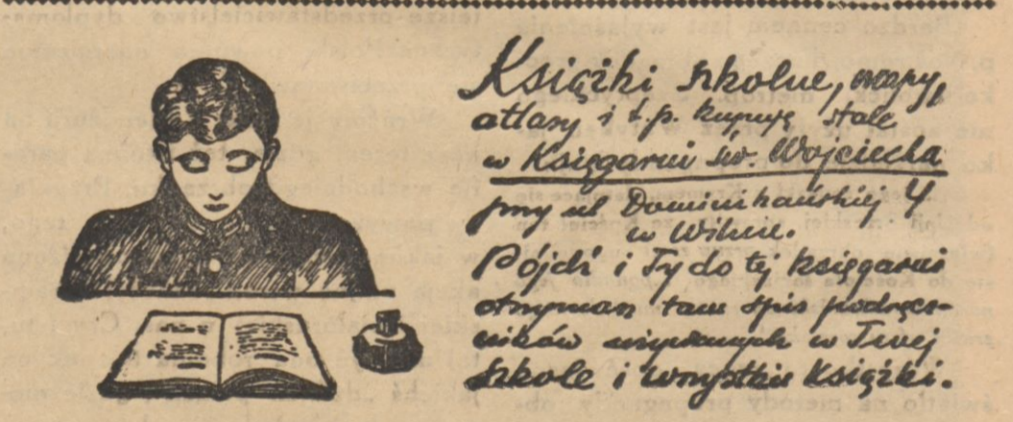 Książki szkolne, mapy,
atlasy i t.p. kupuję stale
w Księgarni św. Wojciecha
przy ul Dominikańskiej 4
w Wilnie.
Pójdź i Ty do tej księgarni
otrzymasz tam spis podręcz-
ników używanych w Twej
szkole i wszystkie książki.